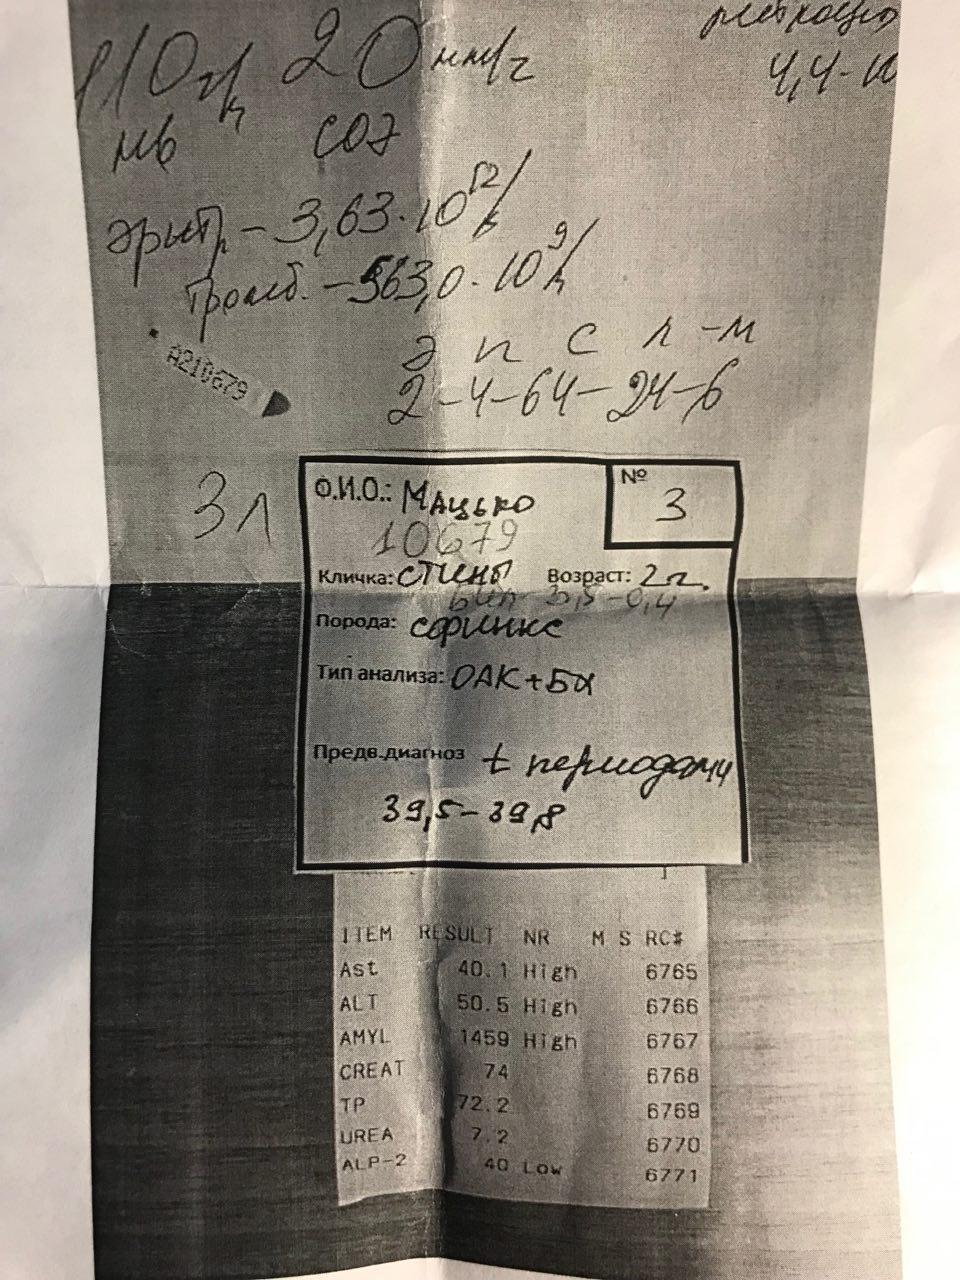 110 г/л 20 мм/г
Нв СОЭ
4,4-10
эритр. – 3,63·10¹²/л
тромб. – 563,0·10⁹/л
э п с л -м
2-4-64-24-6
A210679
3л
Ф.И.О.: Мацько
№ 3
10679
Кличка: Стинг Возраст: 2 г.
3,5-0,4
Порода: сфинкс
Тип анализа: ОАК+БХ
Предв.диагноз t периодами
39,5-39,8
ITEM RESULT NR M S RC#
Ast 40.1 High 6765
ALT 50.5 High 6766
AMYL 1459 High 6767
CREAT 74 6768
TP 72.2 6769
UREA 7.2 6770
ALP-2 40 Low 6771